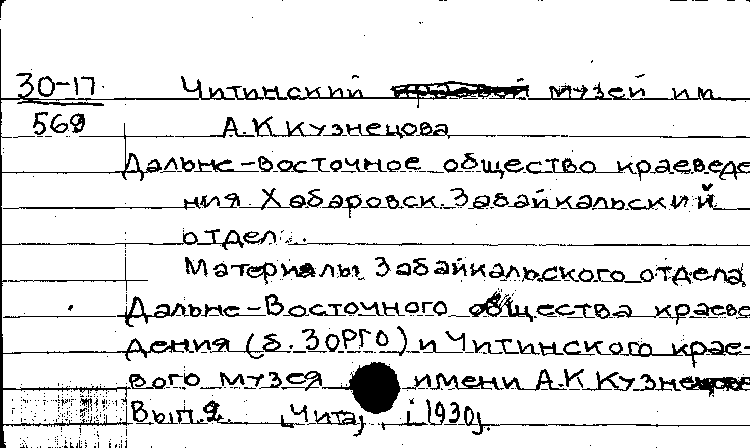 30-17 Читинский краевой музей им.
569 А.К Кузнецова
Дальне-восточное общество краеведе
ния Хабаровск. Забайкальский
отдел.
Материалы Забайкальского отдела
Дальне-Восточного общества краеве
дения (б. ЗОРГО) и Читинского крае-
вого музея имени А.К Кузнецова
Вып. 2. [Чита], [1930].